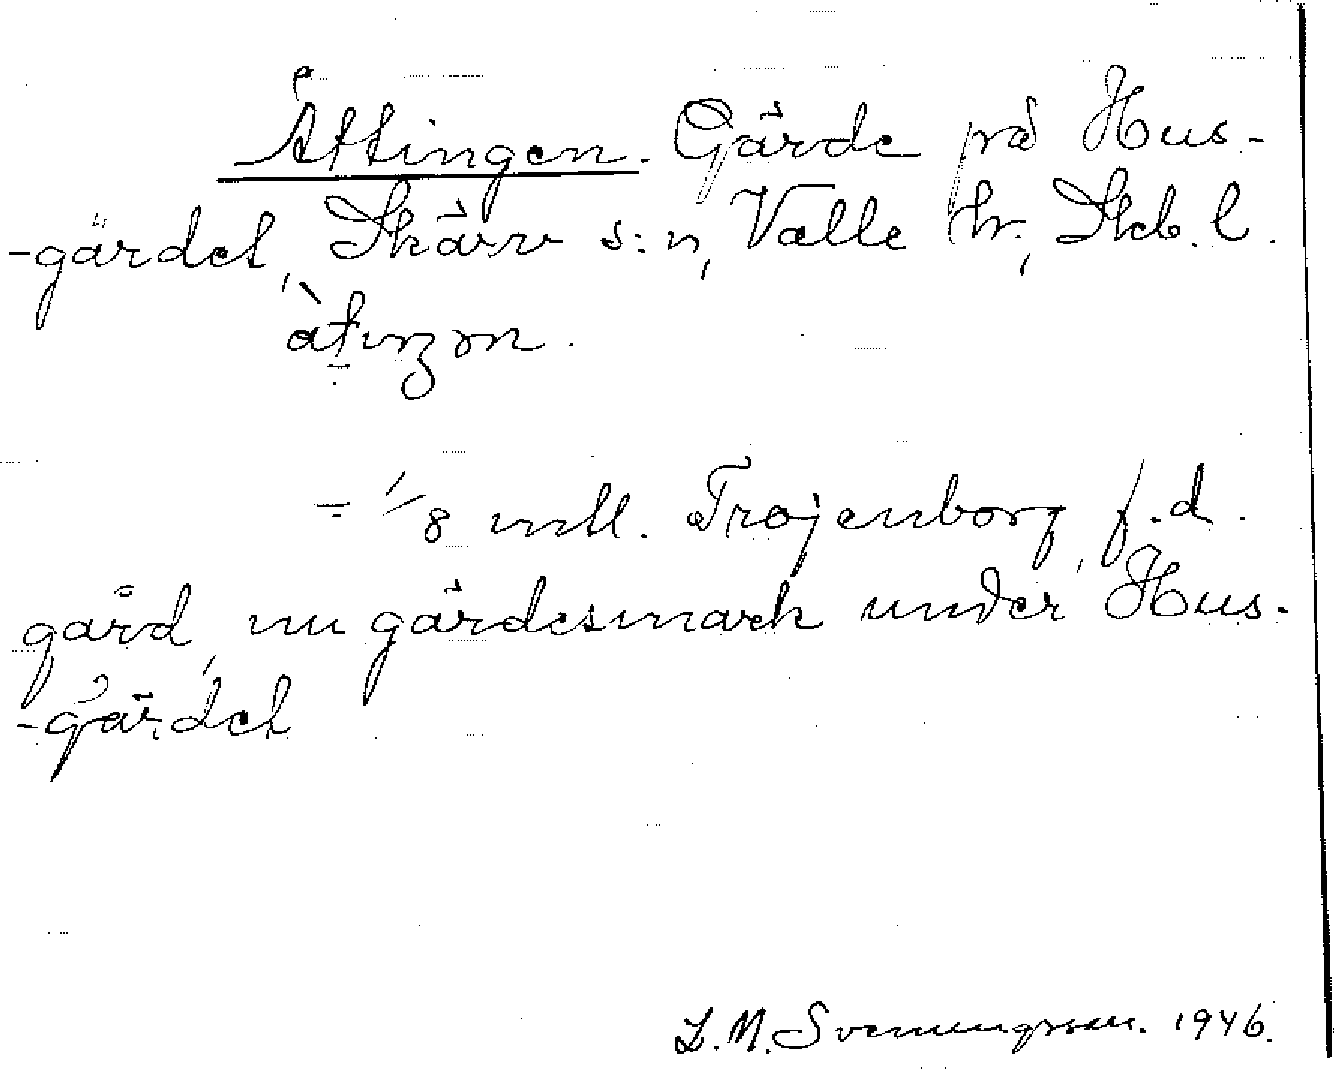 Åttingen. Gärde på Hus-
-gärdet, Skärv s:n, Valle hr, Skb. l.
= 1/8 mtl. Trojenborg, f.d.
gård, nu gärdesmark under Hus-
-gärdet
L. M. Svenungsson. 1946.